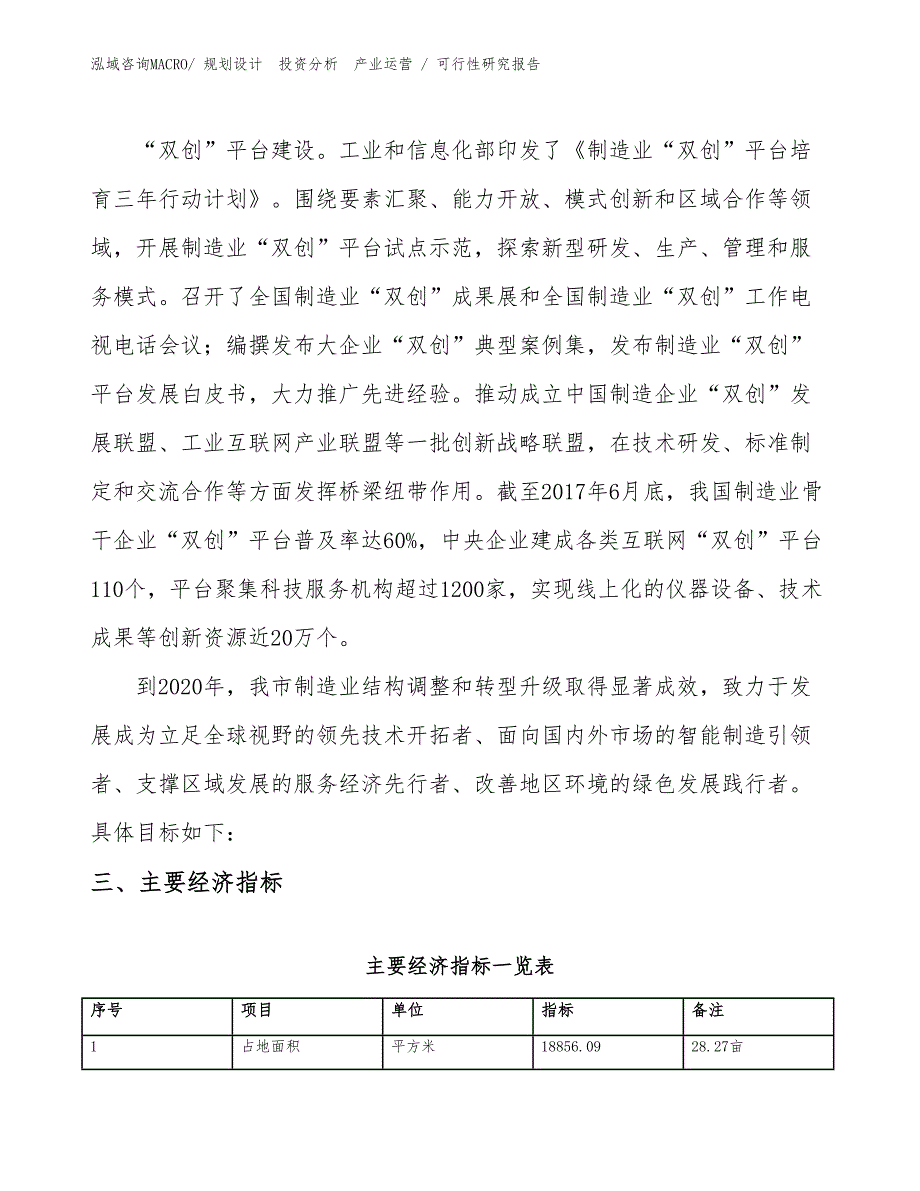 泓域咨询MACRO/ 规划设计 投资分析 产业运营 / 可行性研究报告
“双创”平台建设。工业和信息化部印发了《制造业“双创”平台培
育三年行动计划》。围绕要素汇聚、能力开放、模式创新和区域合作等领
域，开展制造业“双创”平台试点示范，探索新型研发、生产、管理和服
务模式。召开了全国制造业“双创”成果展和全国制造业“双创”工作电
视电话会议；编撰发布大企业“双创”典型案例集，发布制造业“双创”
平台发展白皮书，大力推广先进经验。推动成立中国制造企业“双创”发
展联盟、工业互联网产业联盟等一批创新战略联盟，在技术研发、标准制
定和交流合作等方面发挥桥梁纽带作用。截至2017年6月底，我国制造业骨
干企业“双创”平台普及率达60%，中央企业建成各类互联网“双创”平台
110个，平台聚集科技服务机构超过1200家，实现线上化的仪器设备、技术
成果等创新资源近20万个。
到2020年，我市制造业结构调整和转型升级取得显著成效，致力于发
展成为立足全球视野的领先技术开拓者、面向国内外市场的智能制造引领
者、支撑区域发展的服务经济先行者、改善地区环境的绿色发展践行者。
具体目标如下：
三、主要经济指标
主要经济指标一览表
序号 项目 单位 指标 备注
1 占地面积 平方米 18856.09 28.27亩